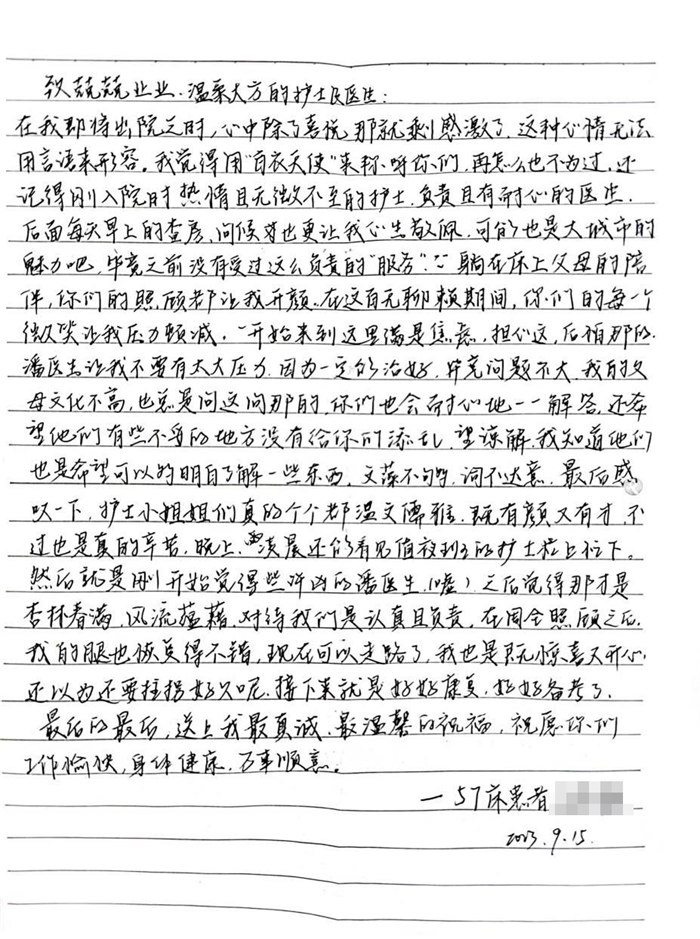 致兢兢业业、温柔大方的护士及医生:
在我即将出院之时,心中除了喜悦,那就剩感激了,这种心情无法
用言语来形容。我觉得用"白衣天使"来称呼你们,再怎么也不为过,还
记得刚入院时热情且无微不至的护士,负责且有耐心的医生。
后面每天早上的查房,问候对也更让我心生敬佩,可能也是大城市的
魅力吧,毕竟之前没有受过这么负责的"服务"。躺在床上父母的陪
伴,你们的照顾都让我开颜。在这百无聊赖期间,你们的每一个
微笑让我压力顿减。一开始来到这里满是焦虑,担心这,后怕那的。
潘医生让我不要有太大压力,因为一定能治好,毕竟问题不大,我的父
母文化不高,也总是问这问那的,你们也会耐心地一一解答,还希
望他们有些不妥的地方没有给你们添乱,望谅解,我知道他们
也是希望可以明白了解一些东西,文藻不够,词不达意,最后感
叹一下,护士小姐姐们真的个个都温文儒雅,既有颜又有才,不
过也是真的辛苦,晚上、凌晨还能看见值夜班的护士忙上忙下。
然后就是刚开始觉得些许凶的潘医生(嘘),之后觉得那才是
杏林春满,风流蕴藉,对待我们是认真且负责,在周全照顾之后,
我的腿也恢复得不错,现在可以走路了,我也是既惊喜又开心
还以为还要拄拐好久呢,接下来就是好好康复,好好备考了。
最后的最后,送上我最真诚、最温馨的祝福,祝愿你们
工作愉快,身体健康,万事顺意。
—57床患者
2023.9.15.